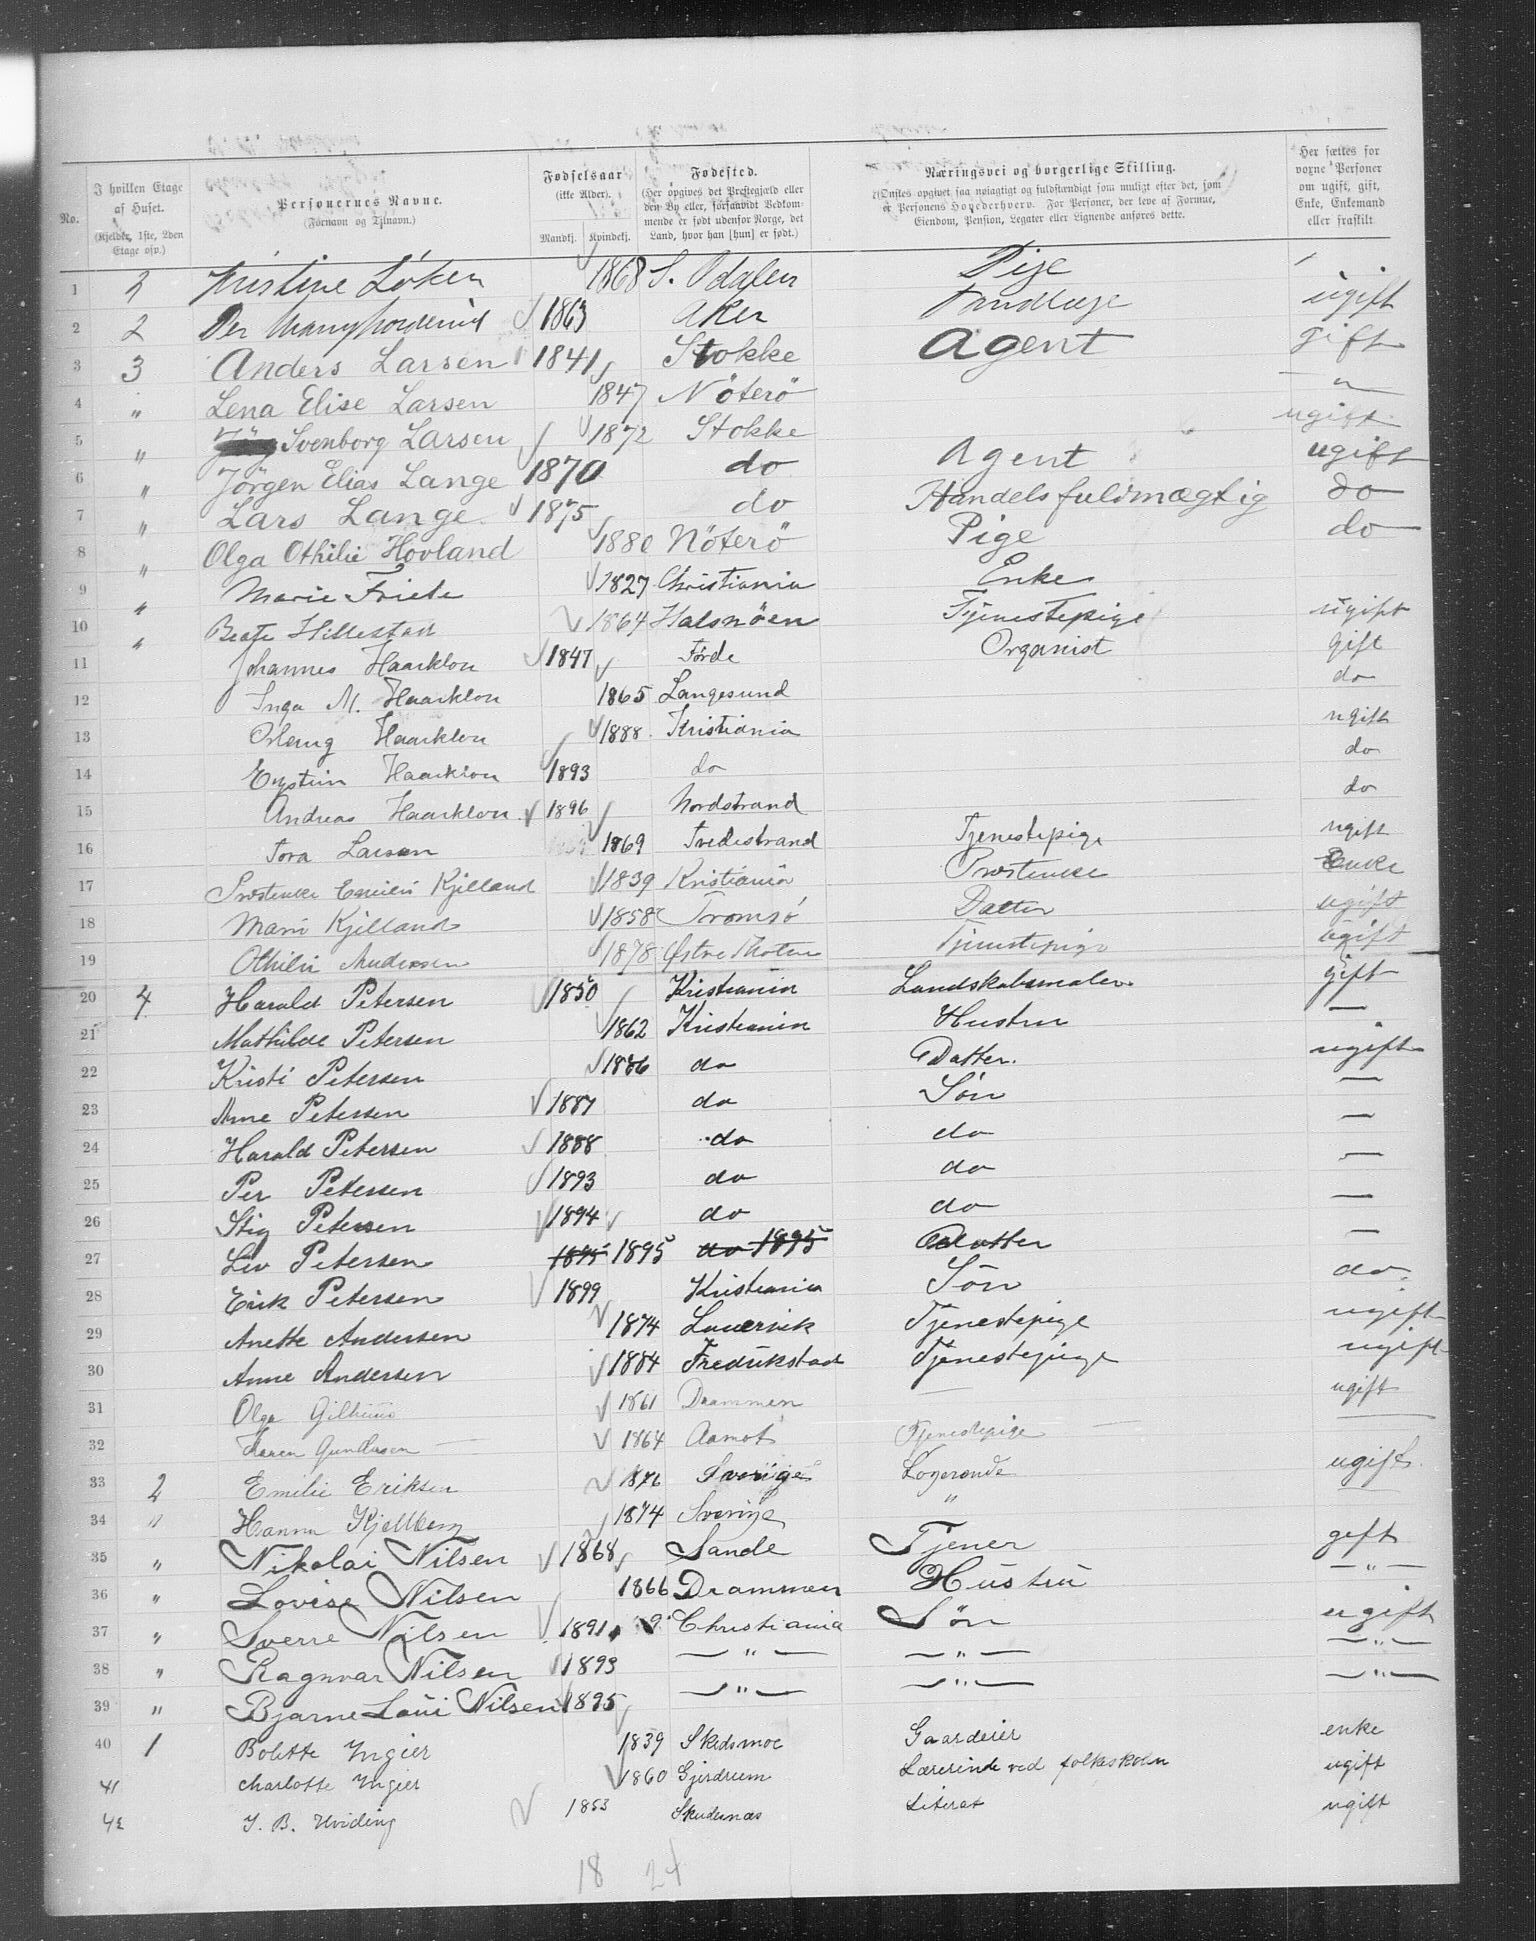 No.
I hvilken Etage af Huset. (Kjelder, 1ste, 2den Etage osv.)
Personernes Navne. (Fornavn og Tilnavn.)
Fødselsaar (ikke Alder). Mandkj. Kvindekj.
Fødested. (Her opgives det Prestegjæld eller den By eller, forsaavidt Vedkommende er født udenfor Norge, det Land, hvor han [hun] er født.)
Næringsvei og borgerlige Stilling. (Ønskes opgivet saa nøiagtigt og fuldstændigt som muligt efter det, som er Personens Hovederhverv. For Personer, der leve af Formue, Eiendom, Pension, Legater eller Lignende anføres dette.
Her sættes for voxne Personer om ugift, gift, Enke, Enkemand eller fraskilt
1 2 Kristine Löken 1868 S. Odalen Pige
2 2 Per 1863 Aker Tandlæge ugift
3 3 Anders Larsen 1841 Stokke Agent gift
4 " Lena Elise Larsen 1847 Nöterö "
5 " Svenborg Larsen 1872 Stokke ugift
6 " Jörgen Elias Lange 1870 do Agent ugift
7 " Lars Lange 1875 do Handelsfuldmægtig do
8 " Olga Othilie Hovland 1880 Nöterö Pige do
9 " Marie Friele 1827 Christiania Enke
10 " Beate Hillestad 1864 Halsnöen Tjenestepige ugift
11 Johannes Haarklou 1847 Förde Organist gift
12 Inga M. Haarklou 1865 Langesund do
13 Haarklou 1888 Kristiania ugift
14 Eystein Haarklou 1893 do do
15 Andreas Haarklou 1896 Nordstrand do
16 Tora Larsen 1869 Tvedestrand Tjenestepige ugift
17 Prostenke Emilie Kjelland 1839 Kristiania Prostenke Enke
18 Marie Kjelland 1858 Tromsö Datter ugift
19 Othilie Andersen 1878 Østre Thoten Tjenestepige ugift
20 4 Harald Petersen 1850 Kristiania Landskabsmaler gift
21 Mathilde Petersen 1862 Kristiania Hustru —
22 Kristi Petersen 1886 do Datter. ugift
23 Arne Petersen 1887 do Sön —
24 Harald Petersen 1888 do do —
25 Per Petersen 1893 do do —
26 Stig Petersen 1894 do do —
27 Liv Petersen 1895 1895 do 1895 Datter —
28 Erik Petersen 1899 Kristiania Sön do
29 Anette Andersen 1874 Laurvik Tjenestepige ugift
30 Anne Andersen 1884 Fredrikstad Tjenestepige ugift
31 Olga 1861 Drammen — ugift
32 Karen Gundersen — 1864 Aamot Tjenestepige —
33 2 Emilie Eriksen 1876 Sverige Logerende ugift
34 " Hanna Kjellberg 1874 Sverige " —
35 " Nikolai Nilsen 1868 Sande Tjener gift
36 " Lovise Nilsen 1866 Drammen Hustru — " —
37 " Sverre Nilsen 1891 Christiania Sön ugift
38 " Ragnvar Nilsen 1893 — " — — " — — " —
39 " Bjarne Loui Nilsen 1895 — " — — " — — " —
40 1 Bolette Yngier 1839 Skedsmoe Gaardeier enke
41 Charlotte Yngier 1860 Gjerdrum Lærerinde ved folkeskolen ugift
42 J. B. Hviding 1853 Skudesnæs Literat ugift
18 24